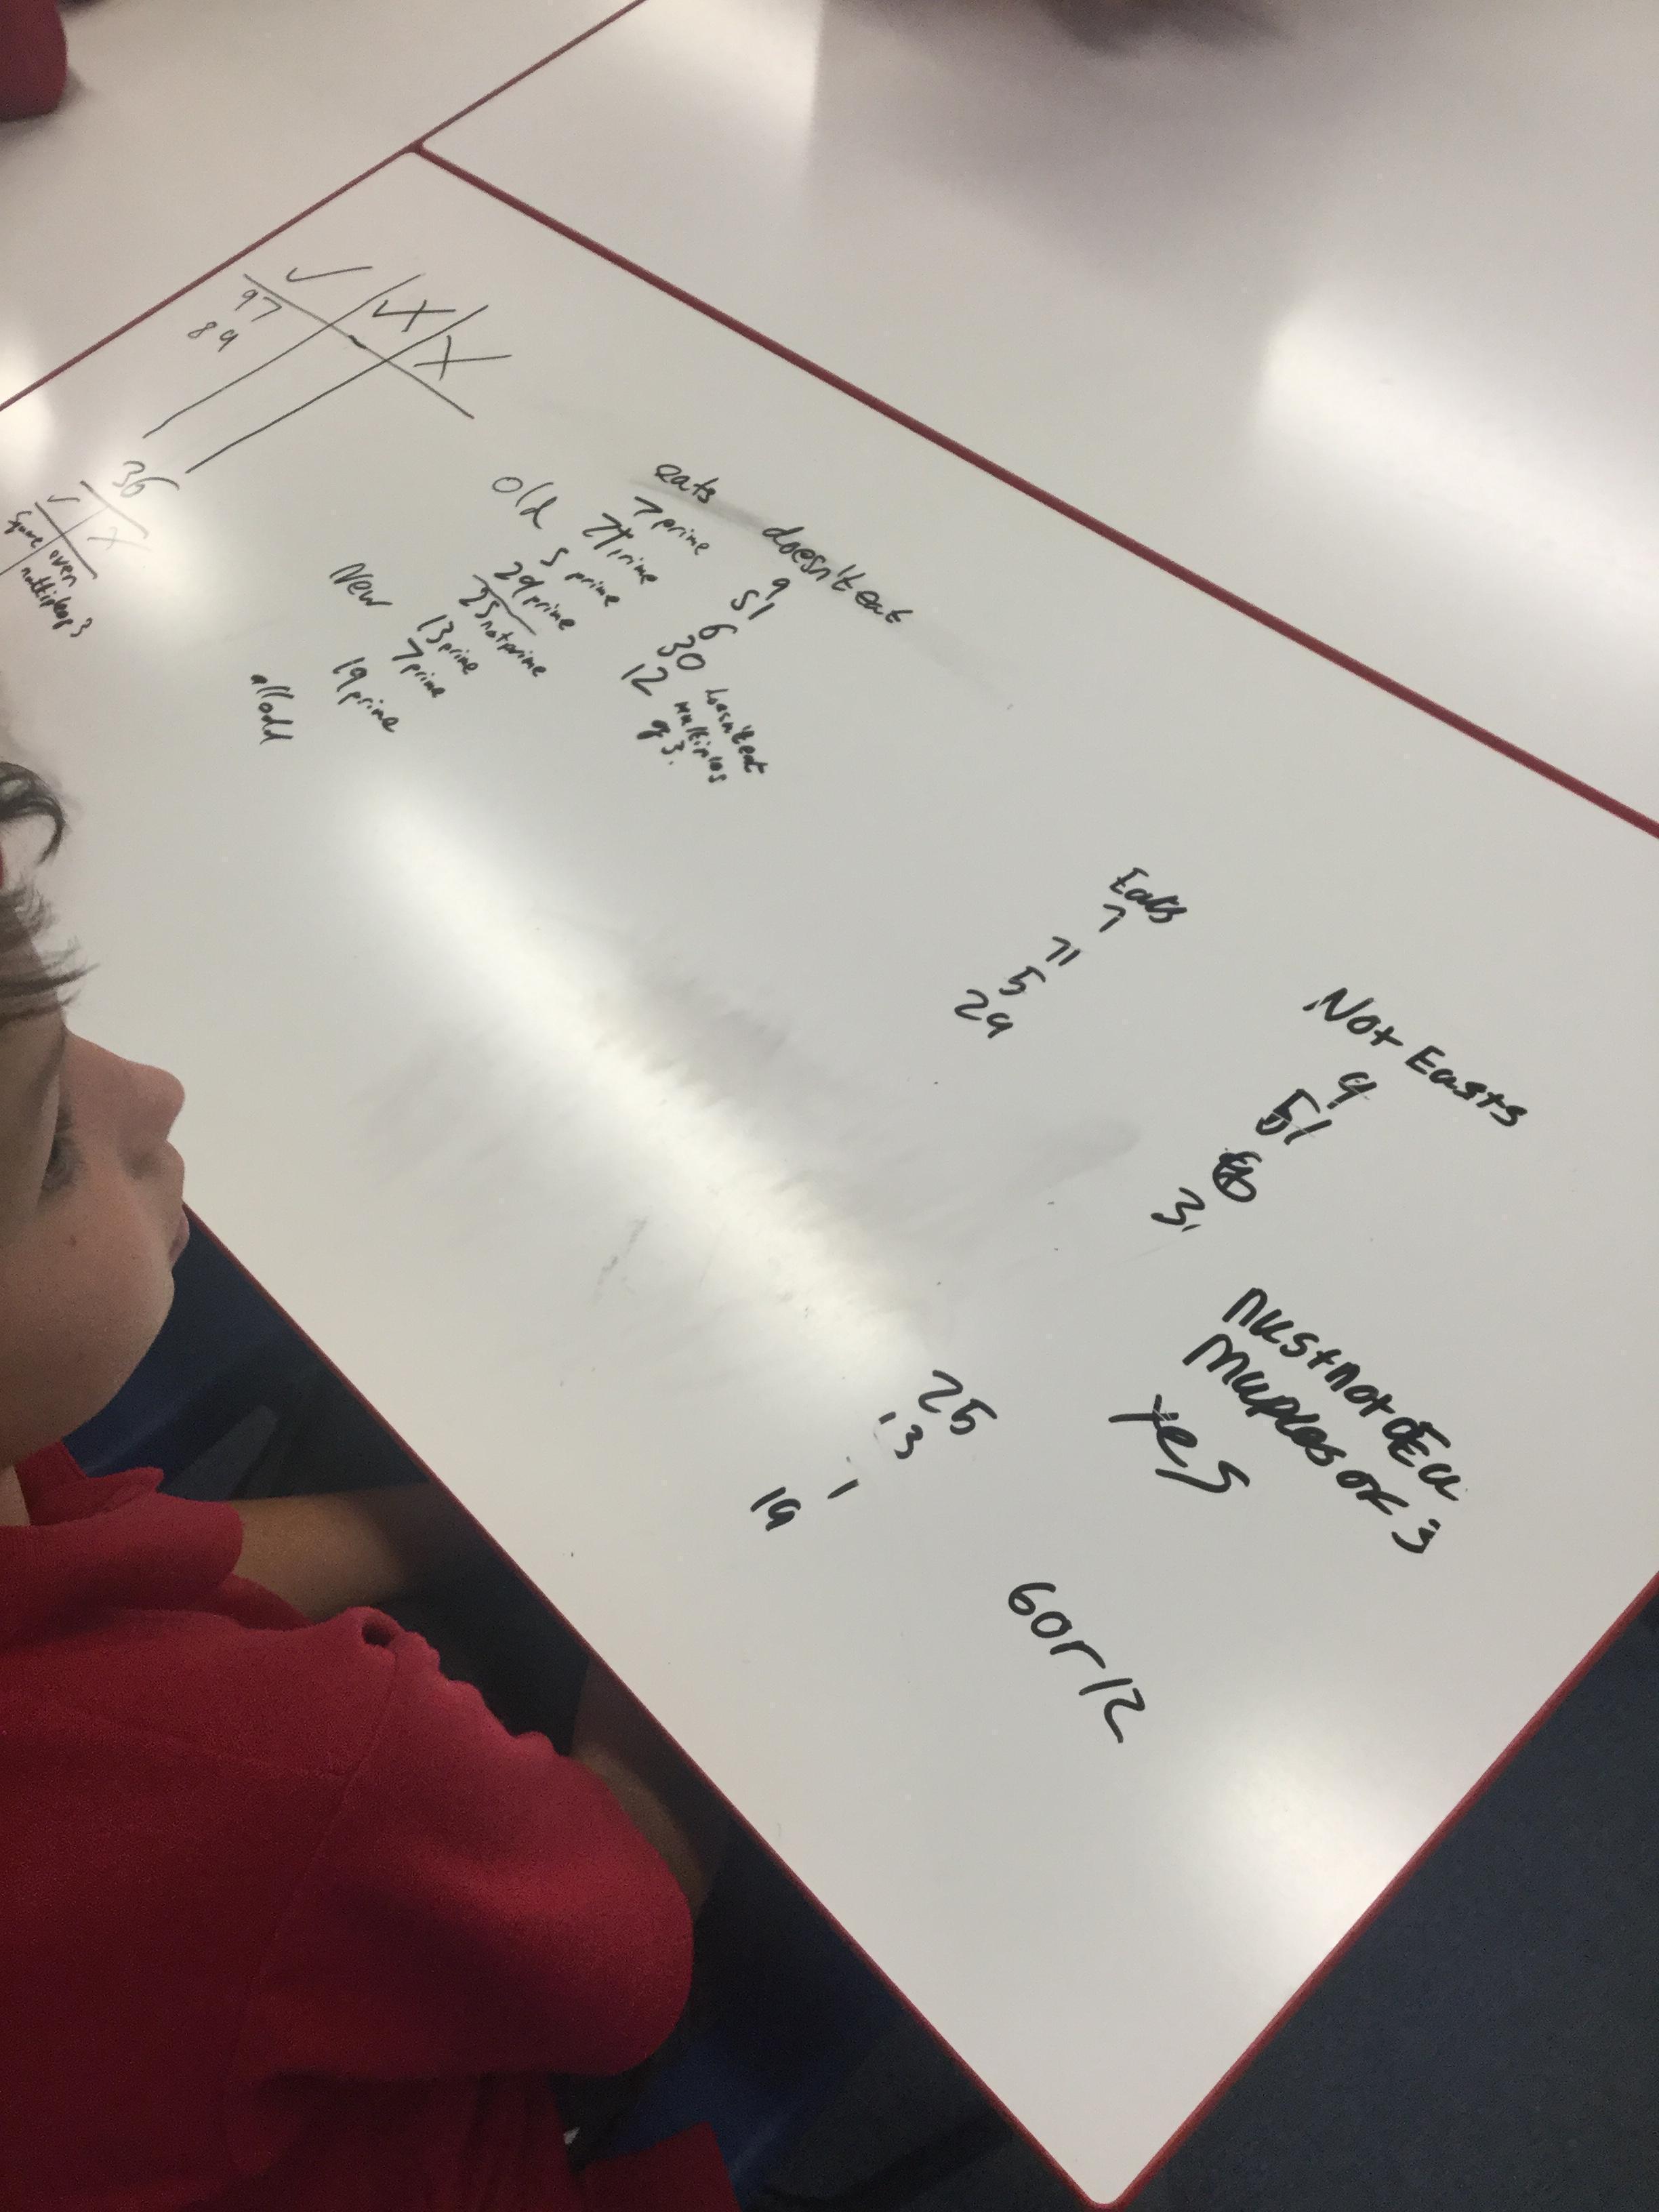 ✓ ✓X X
97
89
36
✓ X
over
multiple of 3
eats doesn't eat
old
7 prime 9
71 prime 51
5 prime 6
29 prime 30
New
25 not prime 12
13 prime
7 prime
19 prime
all odd
doesn't eat
multiples
of 3.
Eats
7
71
5
29
Not Easts
9
51
6
3,
must not be a
muples of 3
yes
25
13
1
19
6 or 12